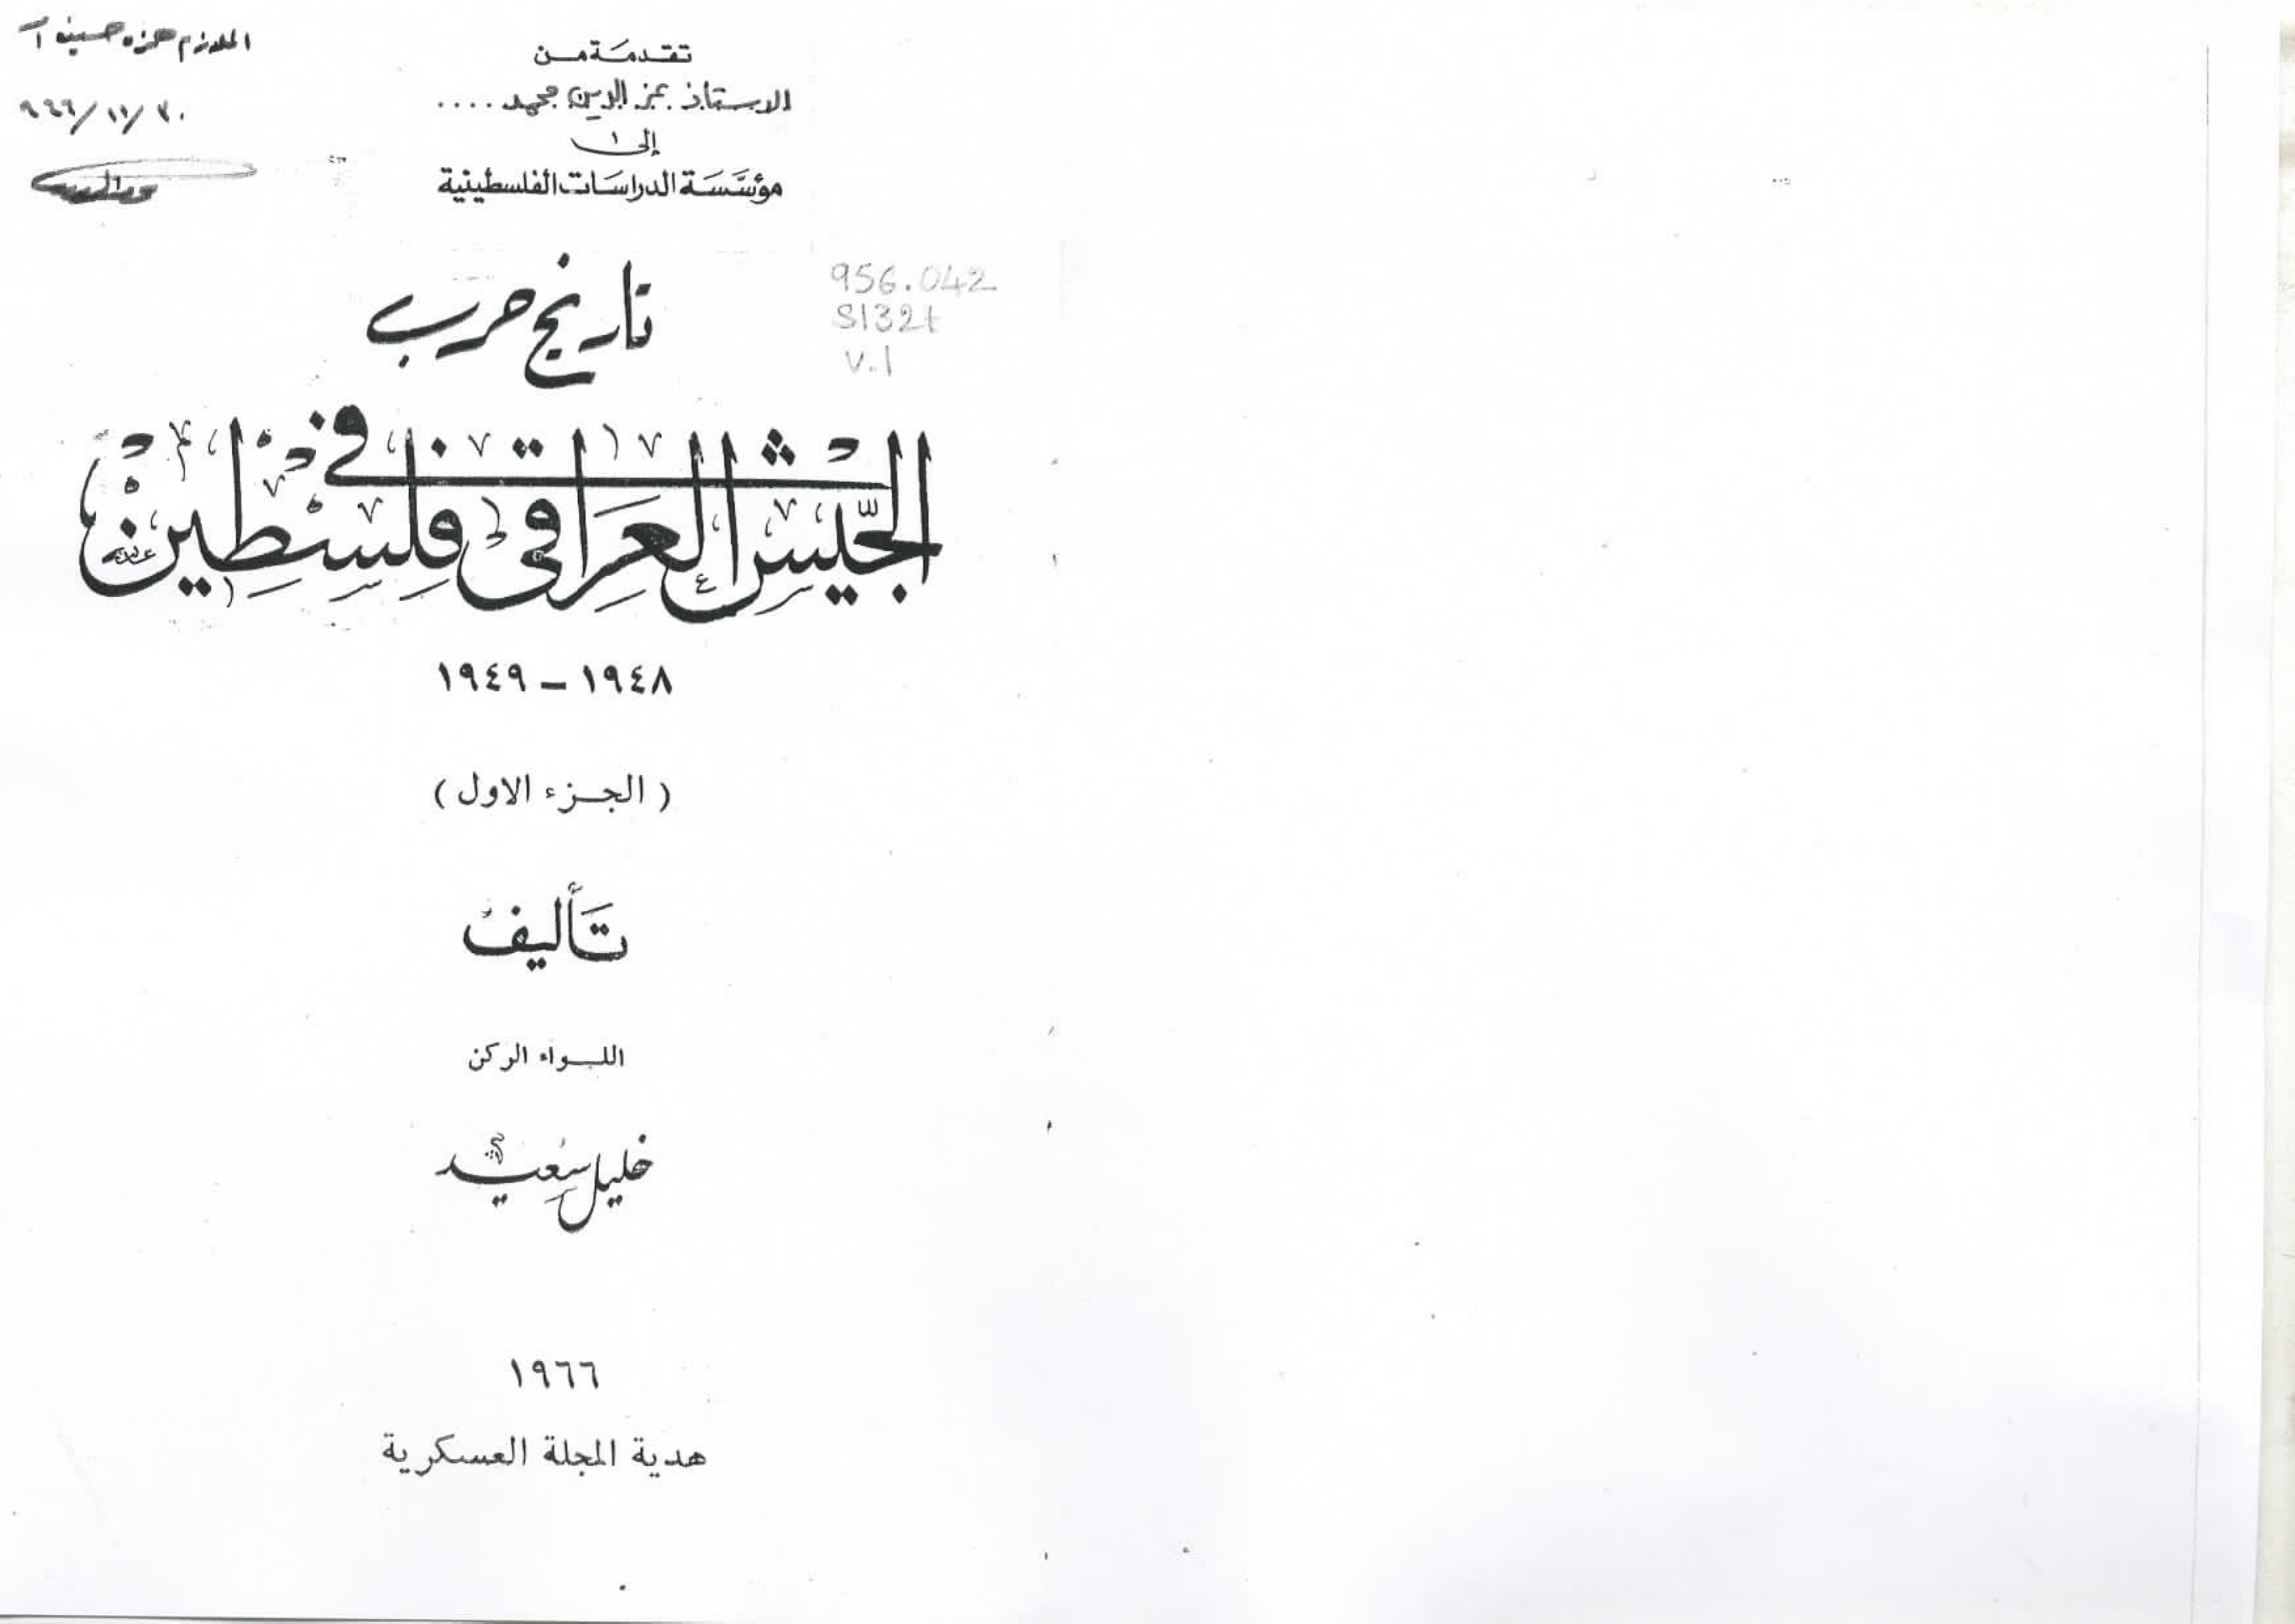 الملازم حمزه حسين
٩٦٦/١١/٣٠
تقدمة من
الاستاذ عز الدين محمد ....
إلى
مؤسسة الدراسات الفلسطينية
956.042
S132t
v.1
تاريخ حرب
الجيش العراقي في فلسطين
١٩٤٨ - ١٩٤٩
( الجزء الاول )
تأليف
اللواء الركن
خليل سعيد
١٩٦٦
هدية المجلة العسكرية